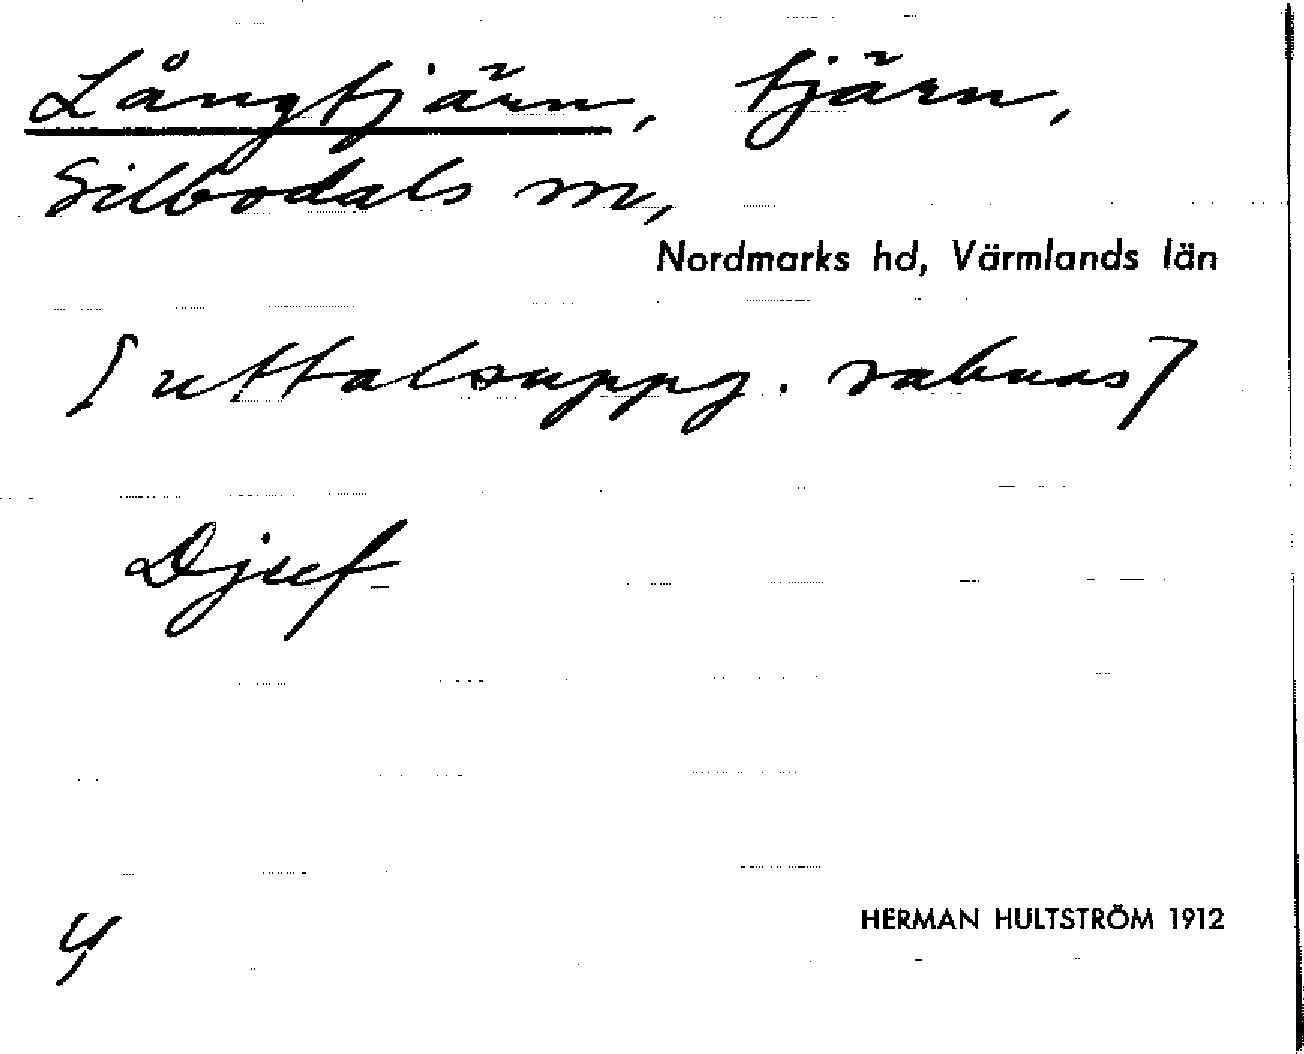 Långtjärn, tjärn,
Silbodals sn,
Nordmarks hd, Värmlands län
[uttalsuppg. saknas]
Djuf
HERMAN HULTSTRÖM 1912